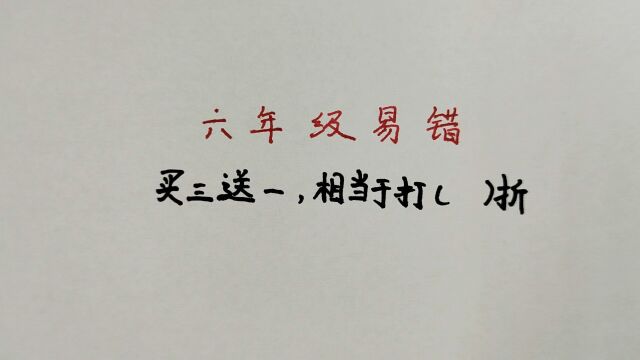 六年级易错
买三送一,相当于打( )折